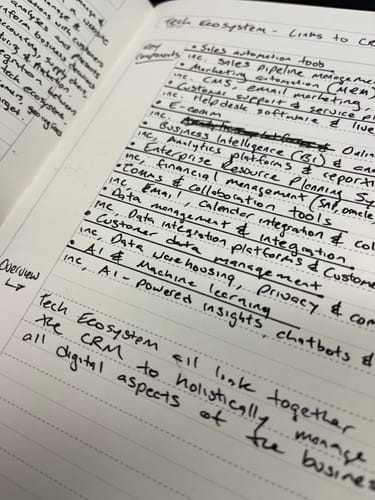 Tech Ecosystem - Links to CR
Key components
• Sales automation tools
inc, Sales pipeline managemen
Marketing automation (MEM)
inc, CMS, email marketing,
• Customer support & service pl
inc, Helpdesk software & live
• E-comm
Onlin
• Business Intelligence (BI) & ana
inc, Analytics platforms & reporti
• Enterprise Resource Planning Sy
inc, financial management (SAP, oracle
• Comms & collaboration tools
inc, Email, calendar integration & col
• Data management & integration
inc, Data integration platforms & custome
• Customer data management
inc, Data warehousing, privacy & com
• AI & Machine learning
inc, AI-powered insights, chatbots &
Overview
Tech Ecosystem all link together
the CRM to holistically manage
all digital aspects of the busines